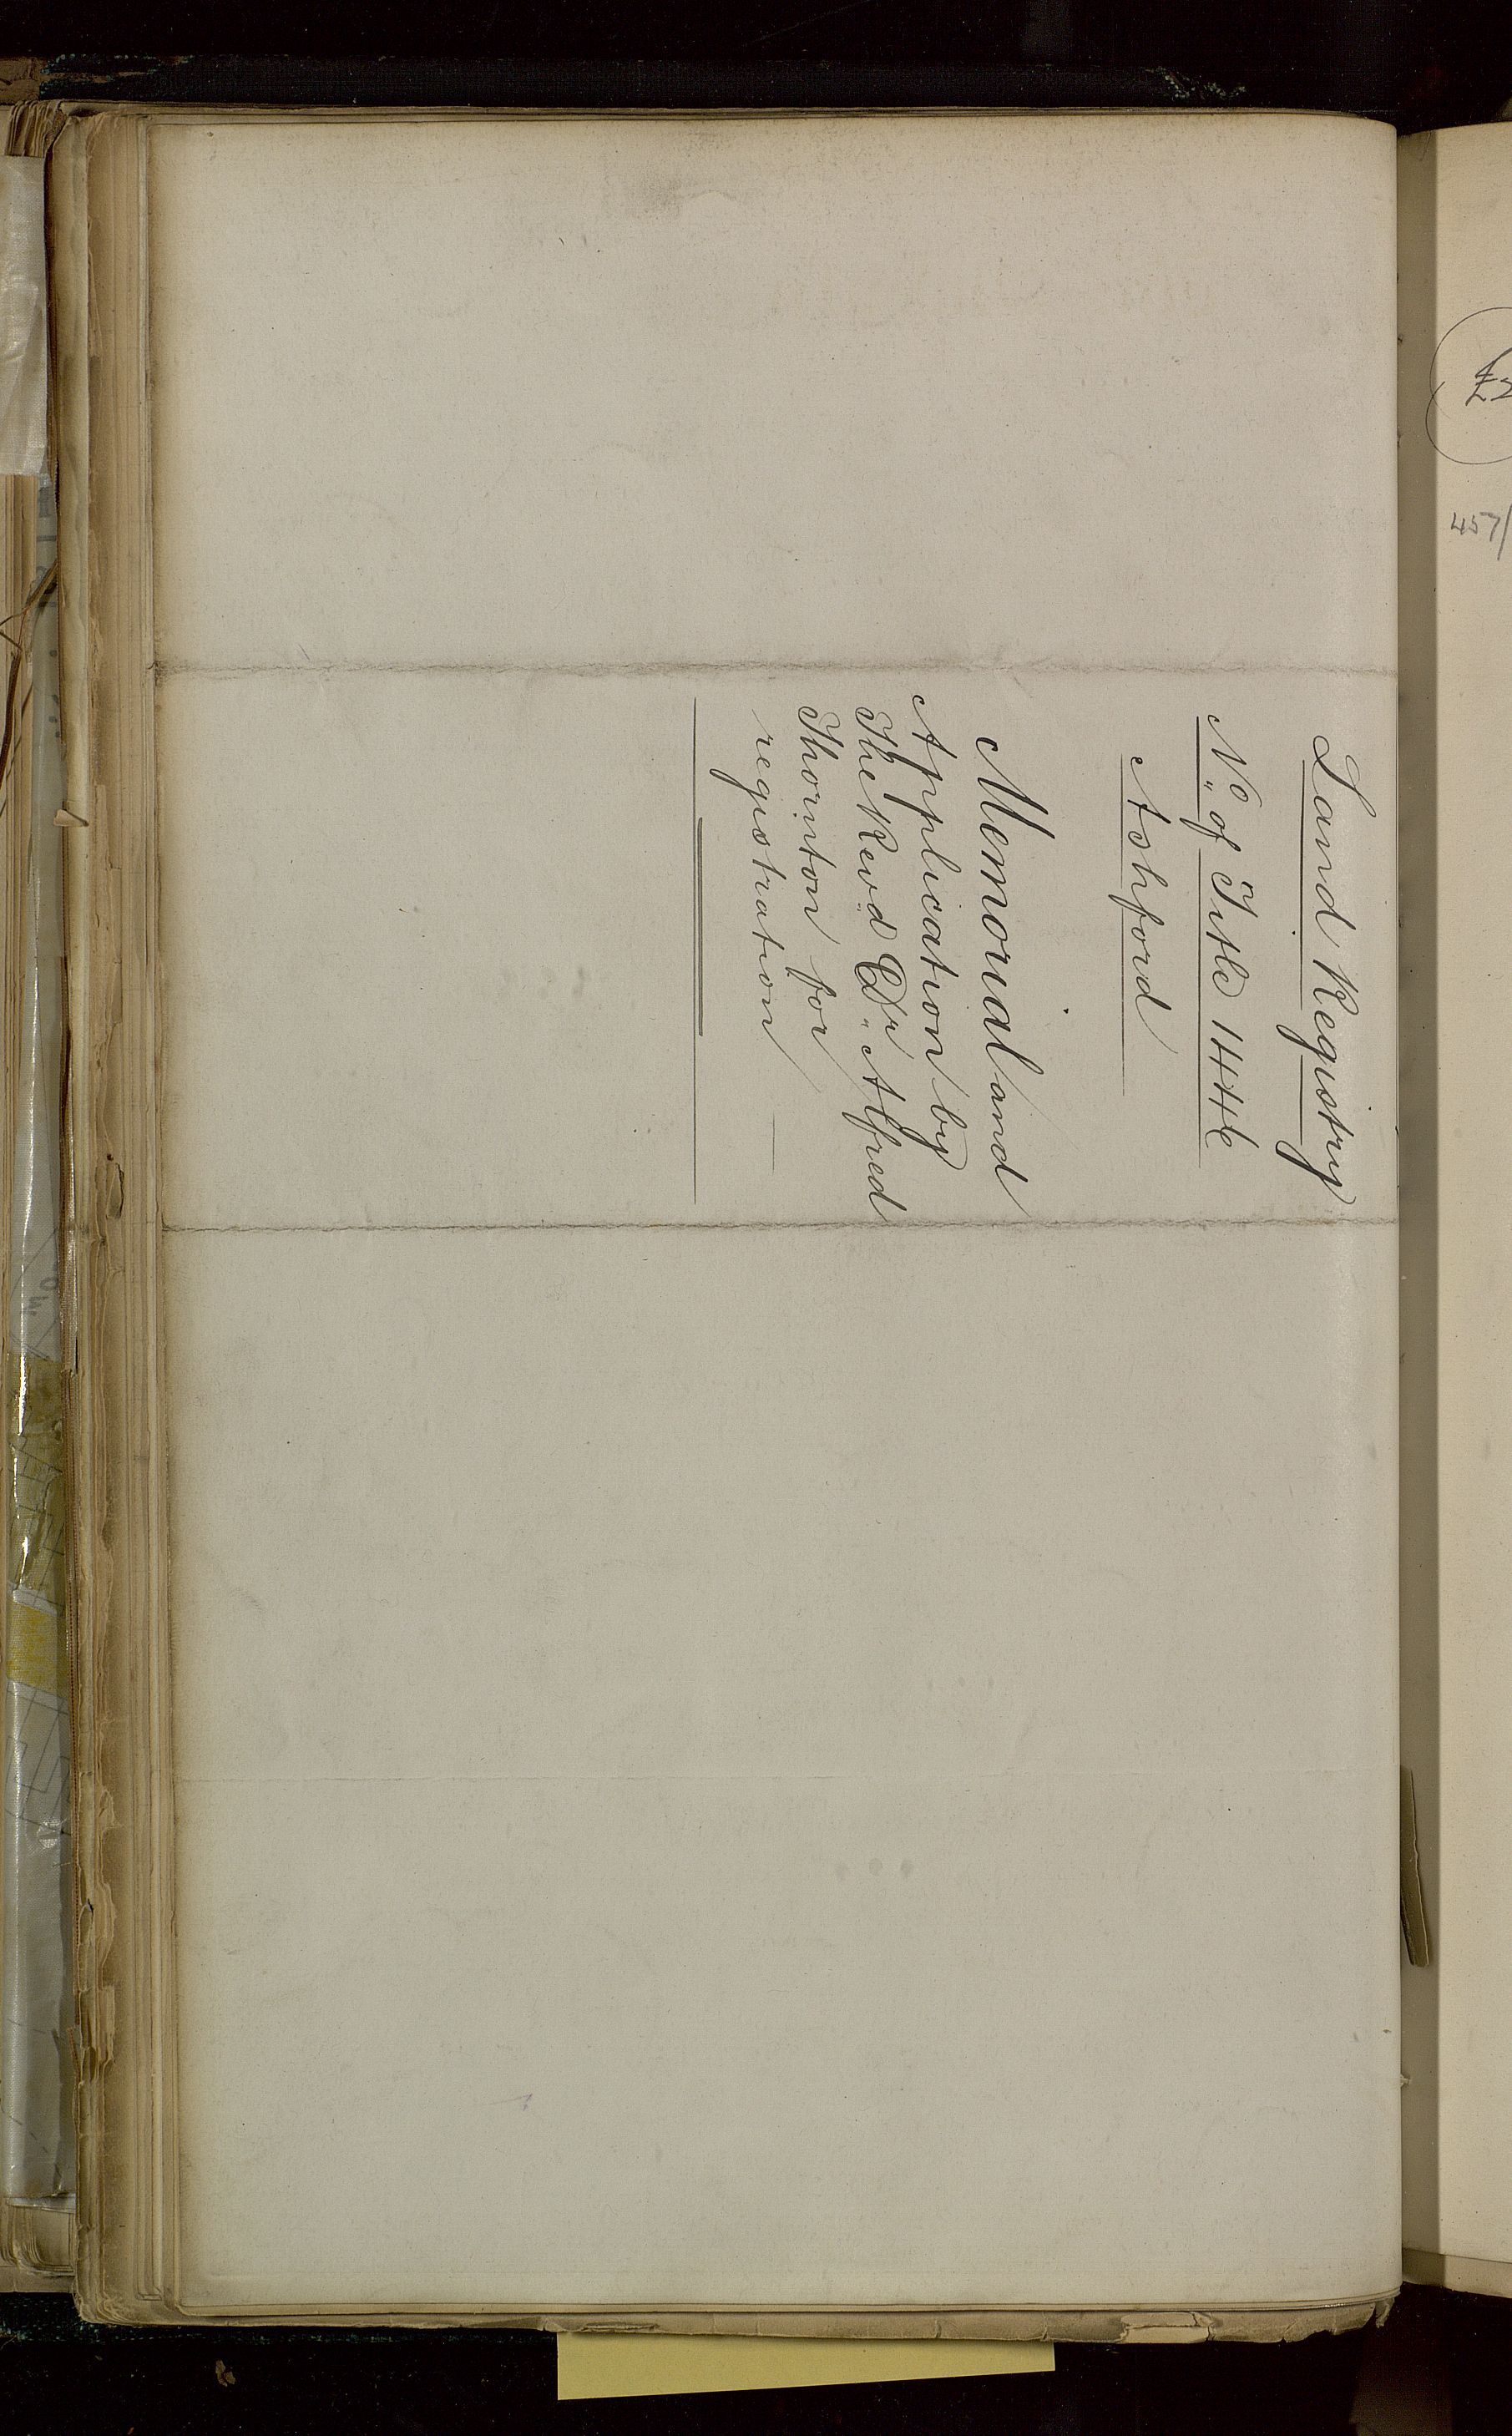 Land Registry
No. of Title 1446
Ashford
Memorial and
Application by
The Revd. Dr. Alfred
Thornton for
registration
457/